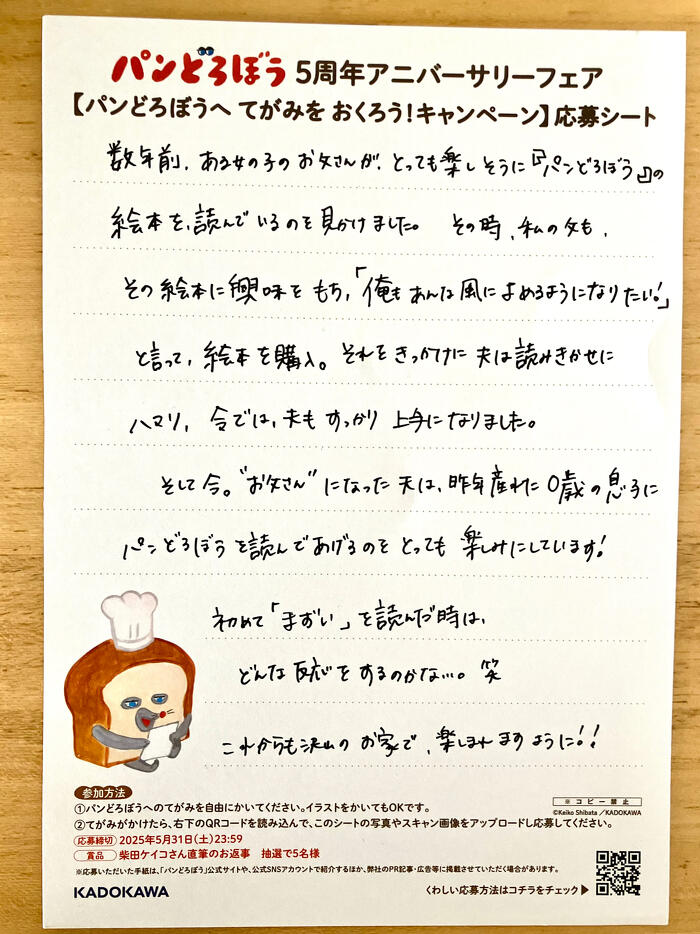 パンどろぼう 5周年アニバーサリーフェア
【パンどろぼうへ てがみを おくろう!キャンペーン】応募シート
数年前、ある女の子のお父さんが、とっても楽しそうに『パンどろぼう』の
絵本を、読んでいるのを見かけました。 その時、私の夫も、
その絵本に興味をもち、「俺もあんな風によめるようになりたい!」
と言って、絵本を購入。それをきっかけに夫は読みきかせに
ハマり、今では、夫もすっかり上手になりました。
そして今。"お父さん"になった夫は、昨年産れた0歳の息子に
パンどろぼうを読んであげるのをとっても楽しみにしています!
初めて「まずい」を読んだ時は、
どんな反応をするのかな…。笑
これからも沢山のお家で、楽しまれますように!!
参加方法
①パンどろぼうへのてがみを自由にかいてください。イラストをかいてもOKです。
※コピー禁止
©Keiko Shibata/KADOKAWA
②てがみがかけたら、右下のQRコードを読み込んで、このシートの写真やスキャン画像をアップロードし応募してください。
応募締切 2025年5月31日(土)23:59
賞品 柴田ケイコさん直筆のお返事 抽選で5名様
※応募いただいた手紙は、「パンどろぼう」公式サイトや、公式SNSアカウントで紹介するほか、弊社のPR記事・広告等に掲載させていただく場合があります。
KADOKAWA
くわしい応募方法はコチラをチェック▶